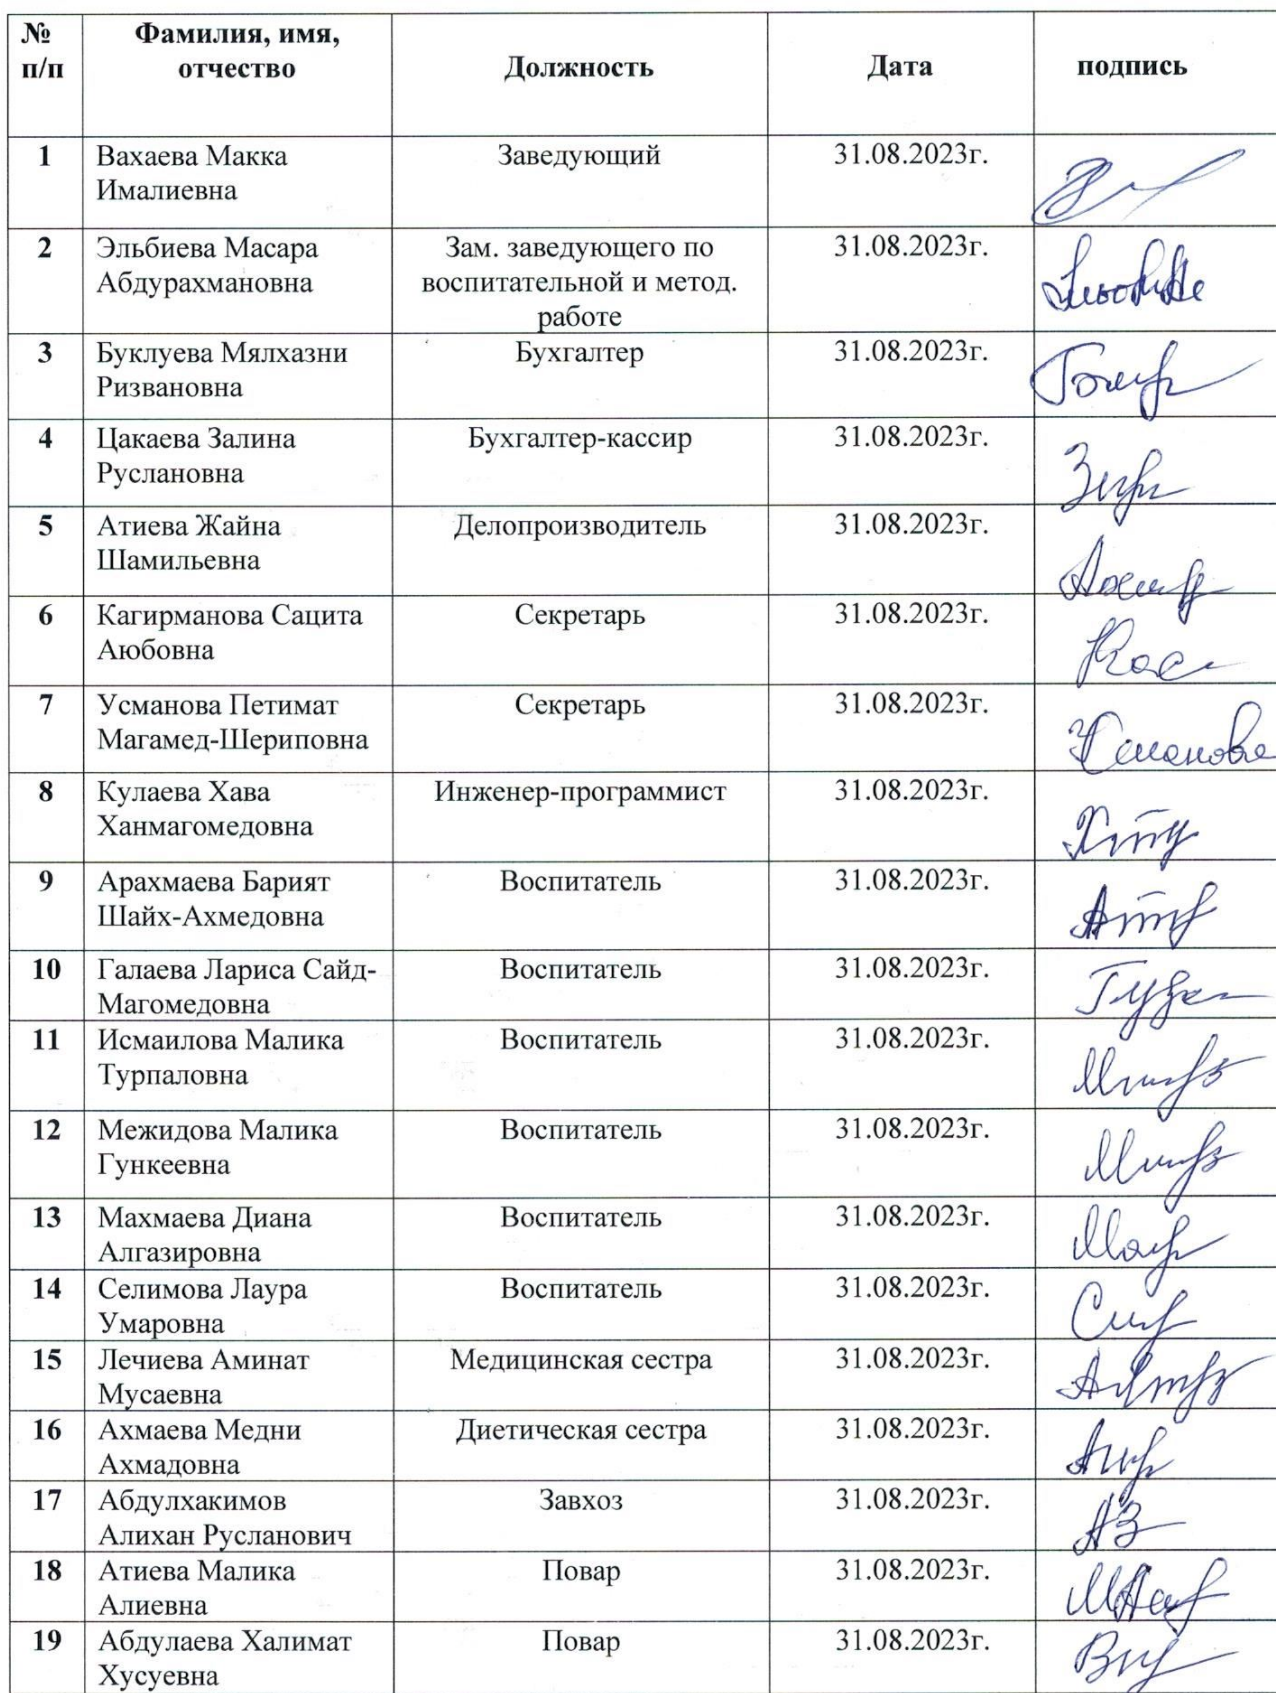 № п/п
Фамилия, имя, отчество
Должность
Дата
подпись
1
Вахаева Макка
Ималиевна
Заведующий
31.08.2023г.
2
Эльбиева Масара
Абдурахмановна
Зам. заведующего по
воспитательной и метод.
работе
31.08.2023г.
3
Буклуева Мялхазни
Ризвановна
Бухгалтер
31.08.2023г.
4
Цакаева Залина
Руслановна
Бухгалтер-кассир
31.08.2023г.
5
Атиева Жайна
Шамильевна
Делопроизводитель
31.08.2023г.
6
Кагирманова Сацита
Аюбовна
Секретарь
31.08.2023г.
7
Усманова Петимат
Магамед-Шериповна
Секретарь
31.08.2023г.
Усманова
8
Кулаева Хава
Ханмагомедовна
Инженер-программист
31.08.2023г.
9
Арахмаева Барият
Шайх-Ахмедовна
Воспитатель
31.08.2023г.
10
Галаева Лариса Сайд-
Магомедовна
Воспитатель
31.08.2023г.
11
Исмаилова Малика
Турпаловна
Воспитатель
31.08.2023г.
12
Межидова Малика
Гункеевна
Воспитатель
31.08.2023г.
13
Махмаева Диана
Алгазировна
Воспитатель
31.08.2023г.
14
Селимова Лаура
Умаровна
Воспитатель
31.08.2023г.
15
Лечиева Аминат
Мусаевна
Медицинская сестра
31.08.2023г.
16
Ахмаева Медни
Ахмадовна
Диетическая сестра
31.08.2023г.
17
Абдулхакимов
Алихан Русланович
Завхоз
31.08.2023г.
18
Атиева Малика
Алиевна
Повар
31.08.2023г.
19
Абдулаева Халимат
Хусуевна
Повар
31.08.2023г.